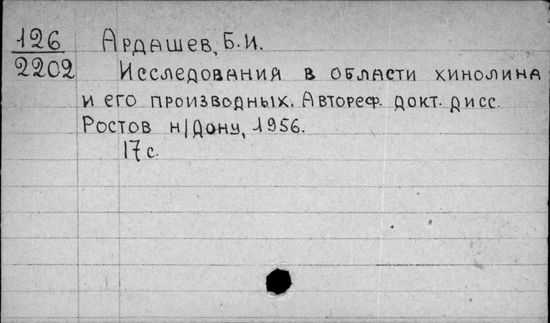 126 Ардашев, Б.И.
2202 Исследования в области хинолина
и его производных. Автореф. докт. дисс.
Ростов н/Дону, 1956.
17 с.